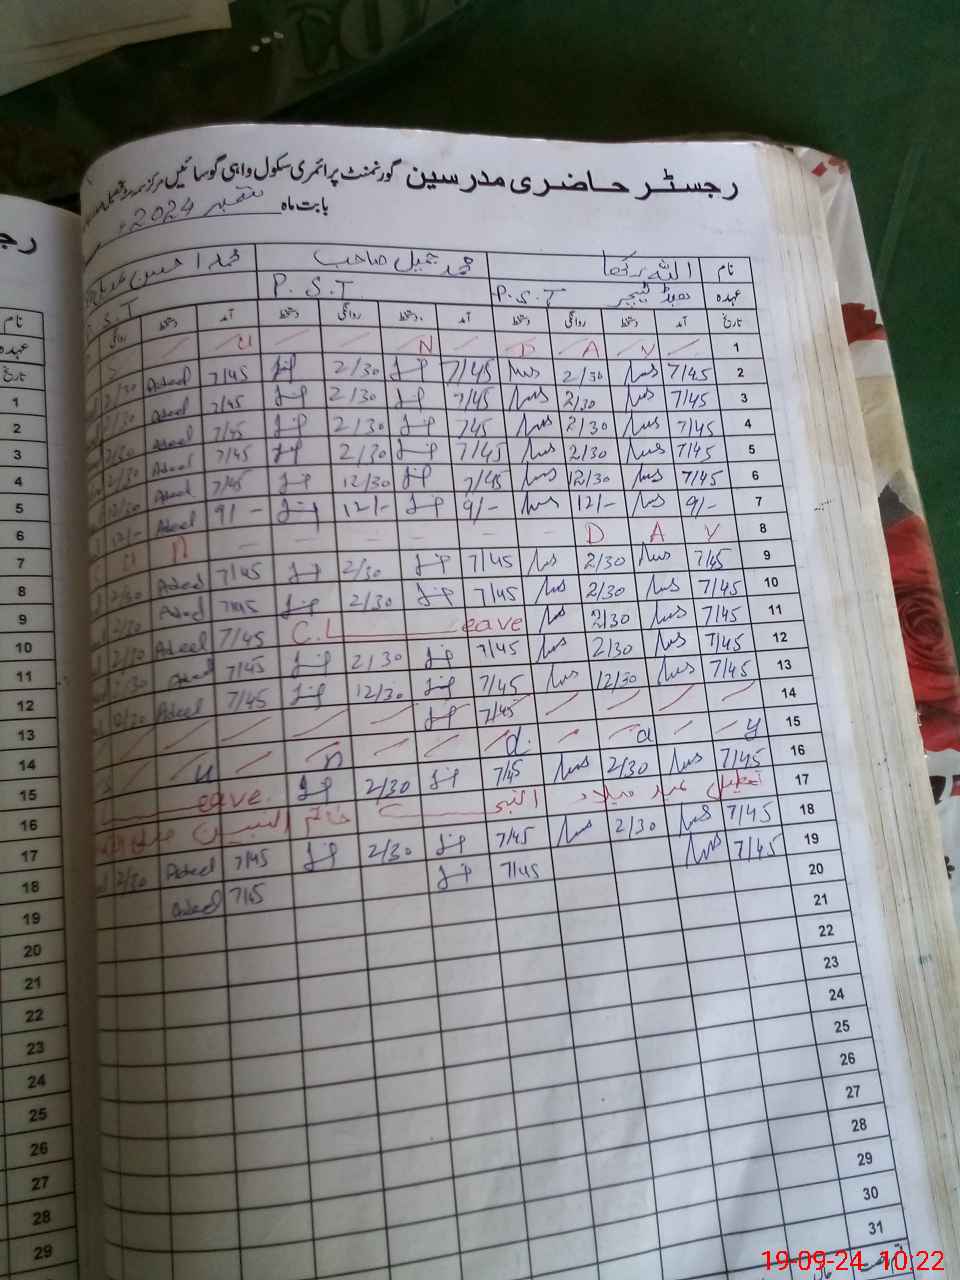 رجسٹر حاضری مدرسین گورنمنٹ پرائمری سکول واہی گوسائیں مرکز
بابت ماہ ستمبر 2024ء
نام اللہ رکھا محمد جمیل صاحب محمد احسن
عہدہ ہیڈ ٹیچر P.S.T P.S.T S.T
تاریخ آمد دستخط روانگی دستخط آمد دستخط روانگی دستخط آمد دستخط روانگی
1 U N D A Y
2 7/45 2/30 7/45 2/30 7/45 Adeel 2/30
3 7/45 2/30 7/45 2/30 7/45 Adeel 2/30
4 7/45 2/30 7/45 2/30 7/45 Adeel 2/30
5 7/45 2/30 7/45 2/30 7/45 Adeel 2/30
6 7/45 12/30 7/45 12/30 7/45 Adeel 12/30
7 9/- 12/- 9/- 12/- 9/- Adeel 12/-
8 U n D A Y
9 7/45 2/30 7/45 2/30 7/45 Adeel 2/30
10 7/45 2/30 7/45 2/30 7/45 Adeel 2/30
11 7/45 2/30 C.Leave 7/45 Adeel 2/30
12 7/45 2/30 7/45 2/30 7/45 Adeel 2/30
13 7/45 12/30 7/45 12/30 7/45 Adeel 12/30
14 7/45
15 u n d a y
16 7/45 2/30 7/45 2/30 Leave
17 تعطیل عید میلاد النبی خاتم النبیین
18 7/45 2/30 7/45 2/30 7/45 Adeel 2/30
19 7/45 7/45 7/45 Adeel
20
21
22
23
24
25
26
27
28
29
30
31
رج
نام
عہدہ
تاریخ
1
2
3
4
5
6
7
8
9
10
11
12
13
14
15
16
17
18
19
20
21
22
23
24
25
26
27
28
29
19-09-24 10:22